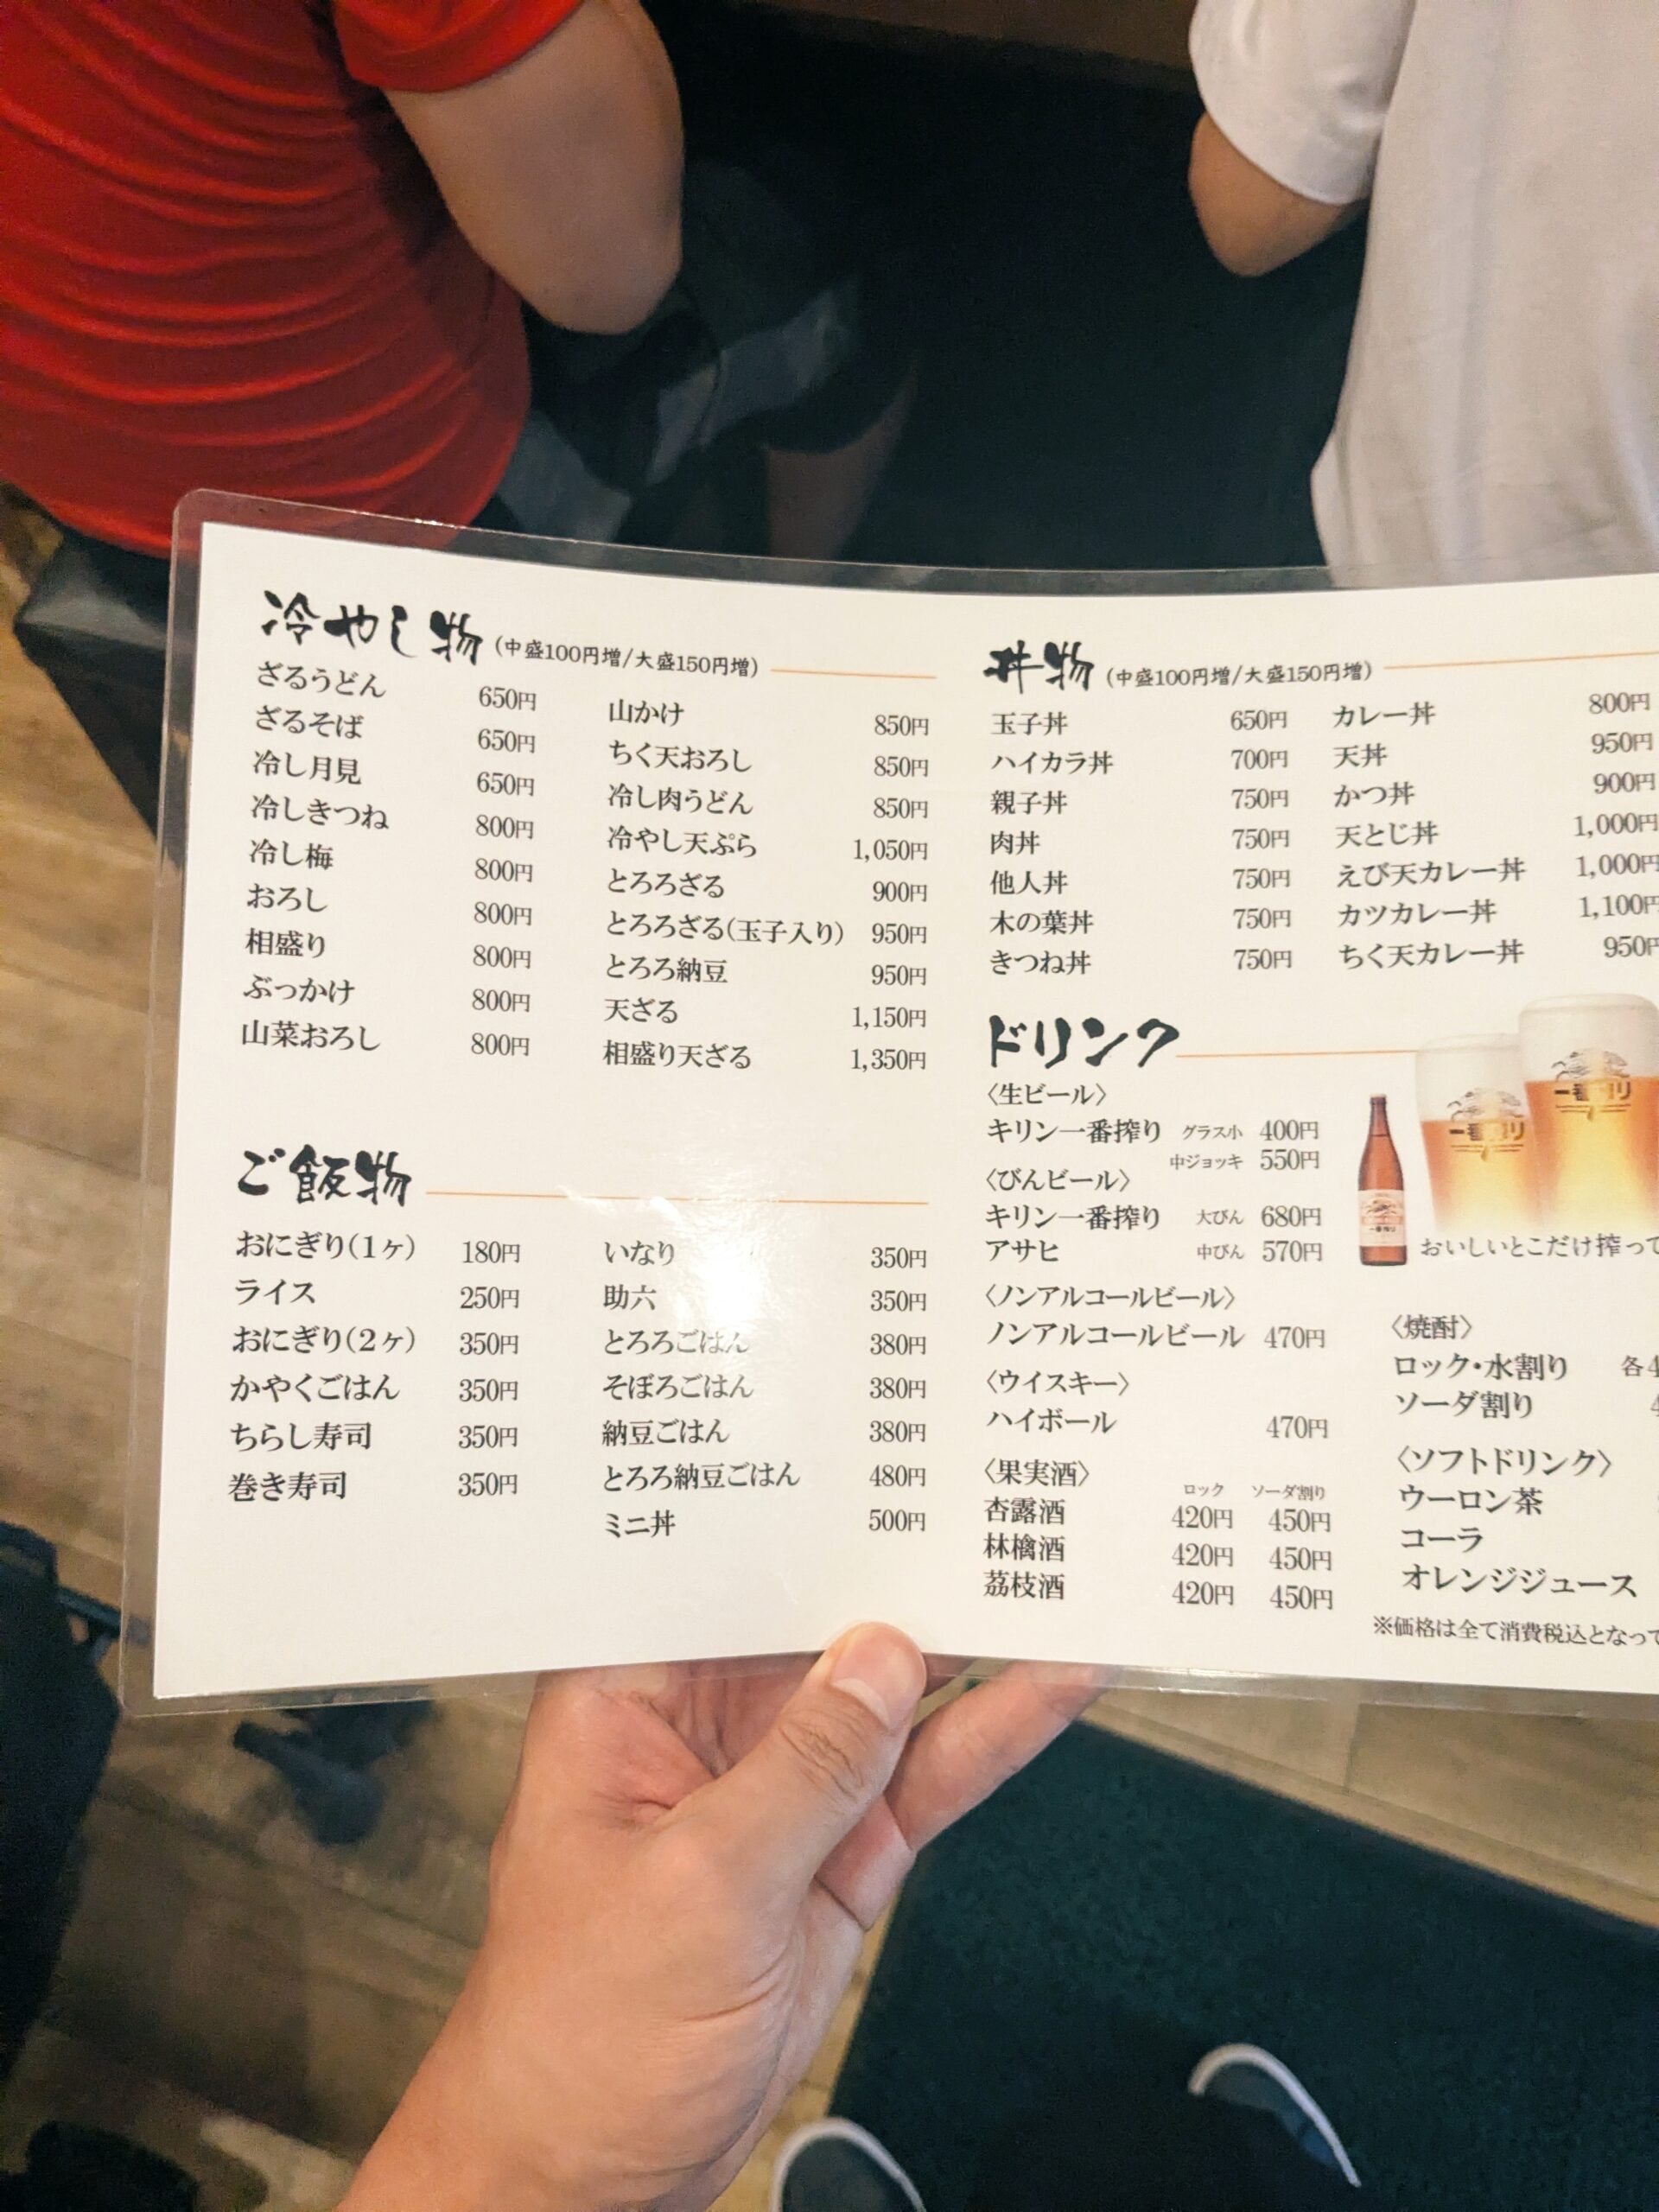 冷やし物 (中盛100円増/大盛150円増)
ざるうどん 650円
ざるそば 650円
冷し月見 650円
冷しきつね 800円
冷し梅 800円
おろし 800円
相盛り 800円
ぶっかけ 800円
山菜おろし 800円
山かけ 850円
ちく天おろし 850円
冷し肉うどん 850円
冷やし天ぷら 1,050円
とろろざる 900円
とろろざる(玉子入り) 950円
とろろ納豆 950円
天ざる 1,150円
相盛り天ざる 1,350円
ご飯物
おにぎり(1ヶ) 180円
ライス 250円
おにぎり(2ヶ) 350円
かやくごはん 350円
ちらし寿司 350円
巻き寿司 350円
いなり 350円
助六 350円
とろろごはん 380円
そぼろごはん 380円
納豆ごはん 380円
とろろ納豆ごはん 480円
ミニ丼 500円
丼物 (中盛100円増/大盛150円増)
玉子丼 650円
ハイカラ丼 700円
親子丼 750円
肉丼 750円
他人丼 750円
木の葉丼 750円
きつね丼 750円
カレー丼 800円
天丼 950円
かつ丼 900円
天とじ丼 1,000円
えび天カレー丼 1,000円
カツカレー丼 1,100円
ちく天カレー丼 950円
ドリンク
〈生ビール〉
キリン一番搾り グラス小 400円
中ジョッキ 550円
〈びんビール〉
キリン一番搾り 大びん 680円
アサヒ 中びん 570円
〈ノンアルコールビール〉
ノンアルコールビール 470円
〈ウイスキー〉
ハイボール 470円
〈果実酒〉
ロック ソーダ割り
杏露酒 420円 450円
林檎酒 420円 450円
茘枝酒 420円 450円
一番搾り
一番搾り
おいしいとこだけ搾って
〈焼酎〉
ロック・水割り 各4
ソーダ割り 4
〈ソフトドリンク〉
ウーロン茶
コーラ
オレンジジュース
※価格は全て消費税込となって